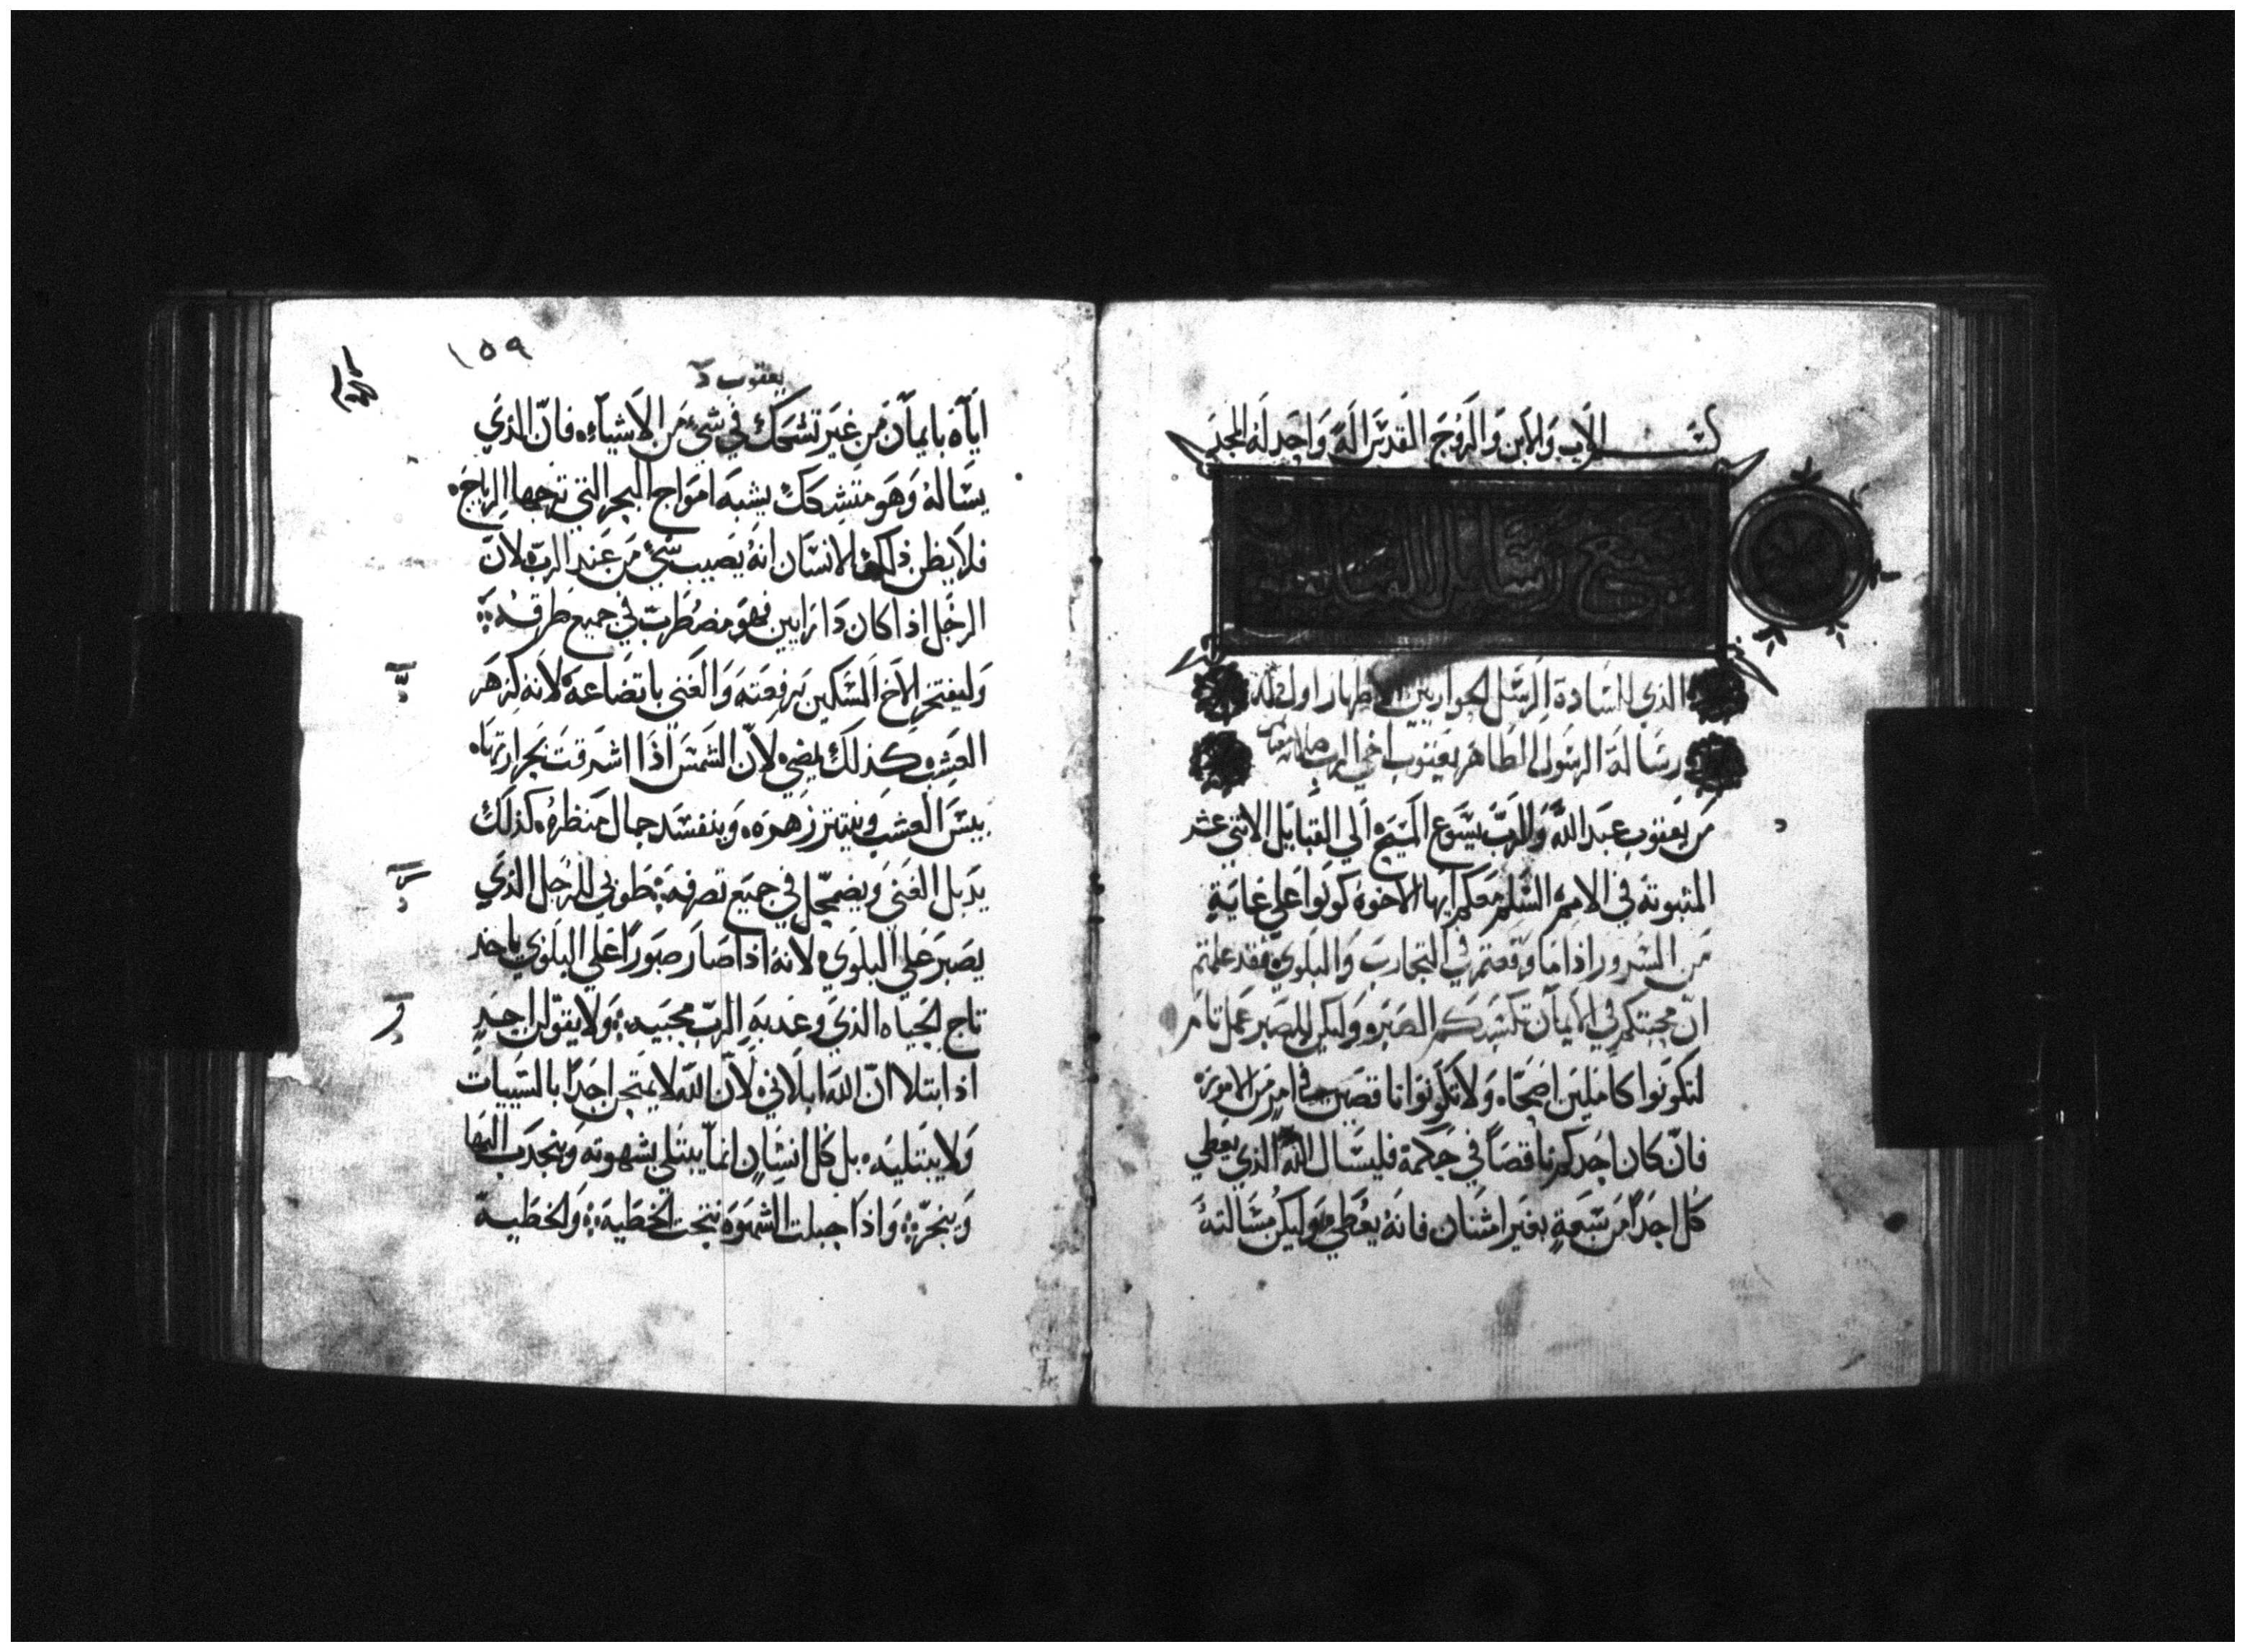 بسم الاب والابن والروح القدس اله واحد له المجد
جميع رسايل
الذي للسادة الرسل الحواريين الاطهار اول ذلك
رسالة الرسول الطاهر يعقوب اخي الرب
من يعقوب عبد الله والرب يسوع المسيح الي القبايل الاثني عشر
المثبوتة في الامم السلم معكم ايها الاخوة كونوا علي غاية
من السرور اذا ما وقعتم في التجارب والبلوي فقد علمتم
ان محبتكم في الايمان تكسبكم الصبر وليكن للصبر عمل تام
لتكونوا كاملين اصحاء ولا تكونوا ناقصين في امر من الامور
فان كان احدكم ناقصا في حكمة فليسال الله الذي يعطي
كل احدا من سعة بغير امتنان فانه يعطي وليكن مسالته
١٥٩
يعقوب
اياه بايمان من غير تشكك في شي من الاشياء فان الذي
يساله وهو متشكك يشبه امواج البحر التي ترجها الرياح
فلا يظن ذلك الانسان انه يصيب شي من عند الرب لان
الرجل اذا كان ذا رايين فهو مضطرب في جميع طرقه
وليفتخر الاخ المسكين برفعته والغني باتضاعه لانه كزهر
العشب كذلك يمضي لان الشمس اذا اشرقت بحرارتها
يبس العشب وينتثر زهره وينفسد جمال منظره كذلك
يدبل الغني ويضمحل في جميع تصرفه طوبي للرجل الذي
يصبر علي البلوي لانه اذا صار صبورا علي البلوي ياخذ
تاج الحياه الذي وعد به الرب محبيه ولا يقول احد
اذا ابتلا ان الله ابلاني لان الله لا يمتحن احدا بالسييات
ولا يبتليه بل كل انسان انما يبتلي بشهوته وينجدب اليها
وينجر واذا حبلت الشهوة نتجت الخطية والخطية